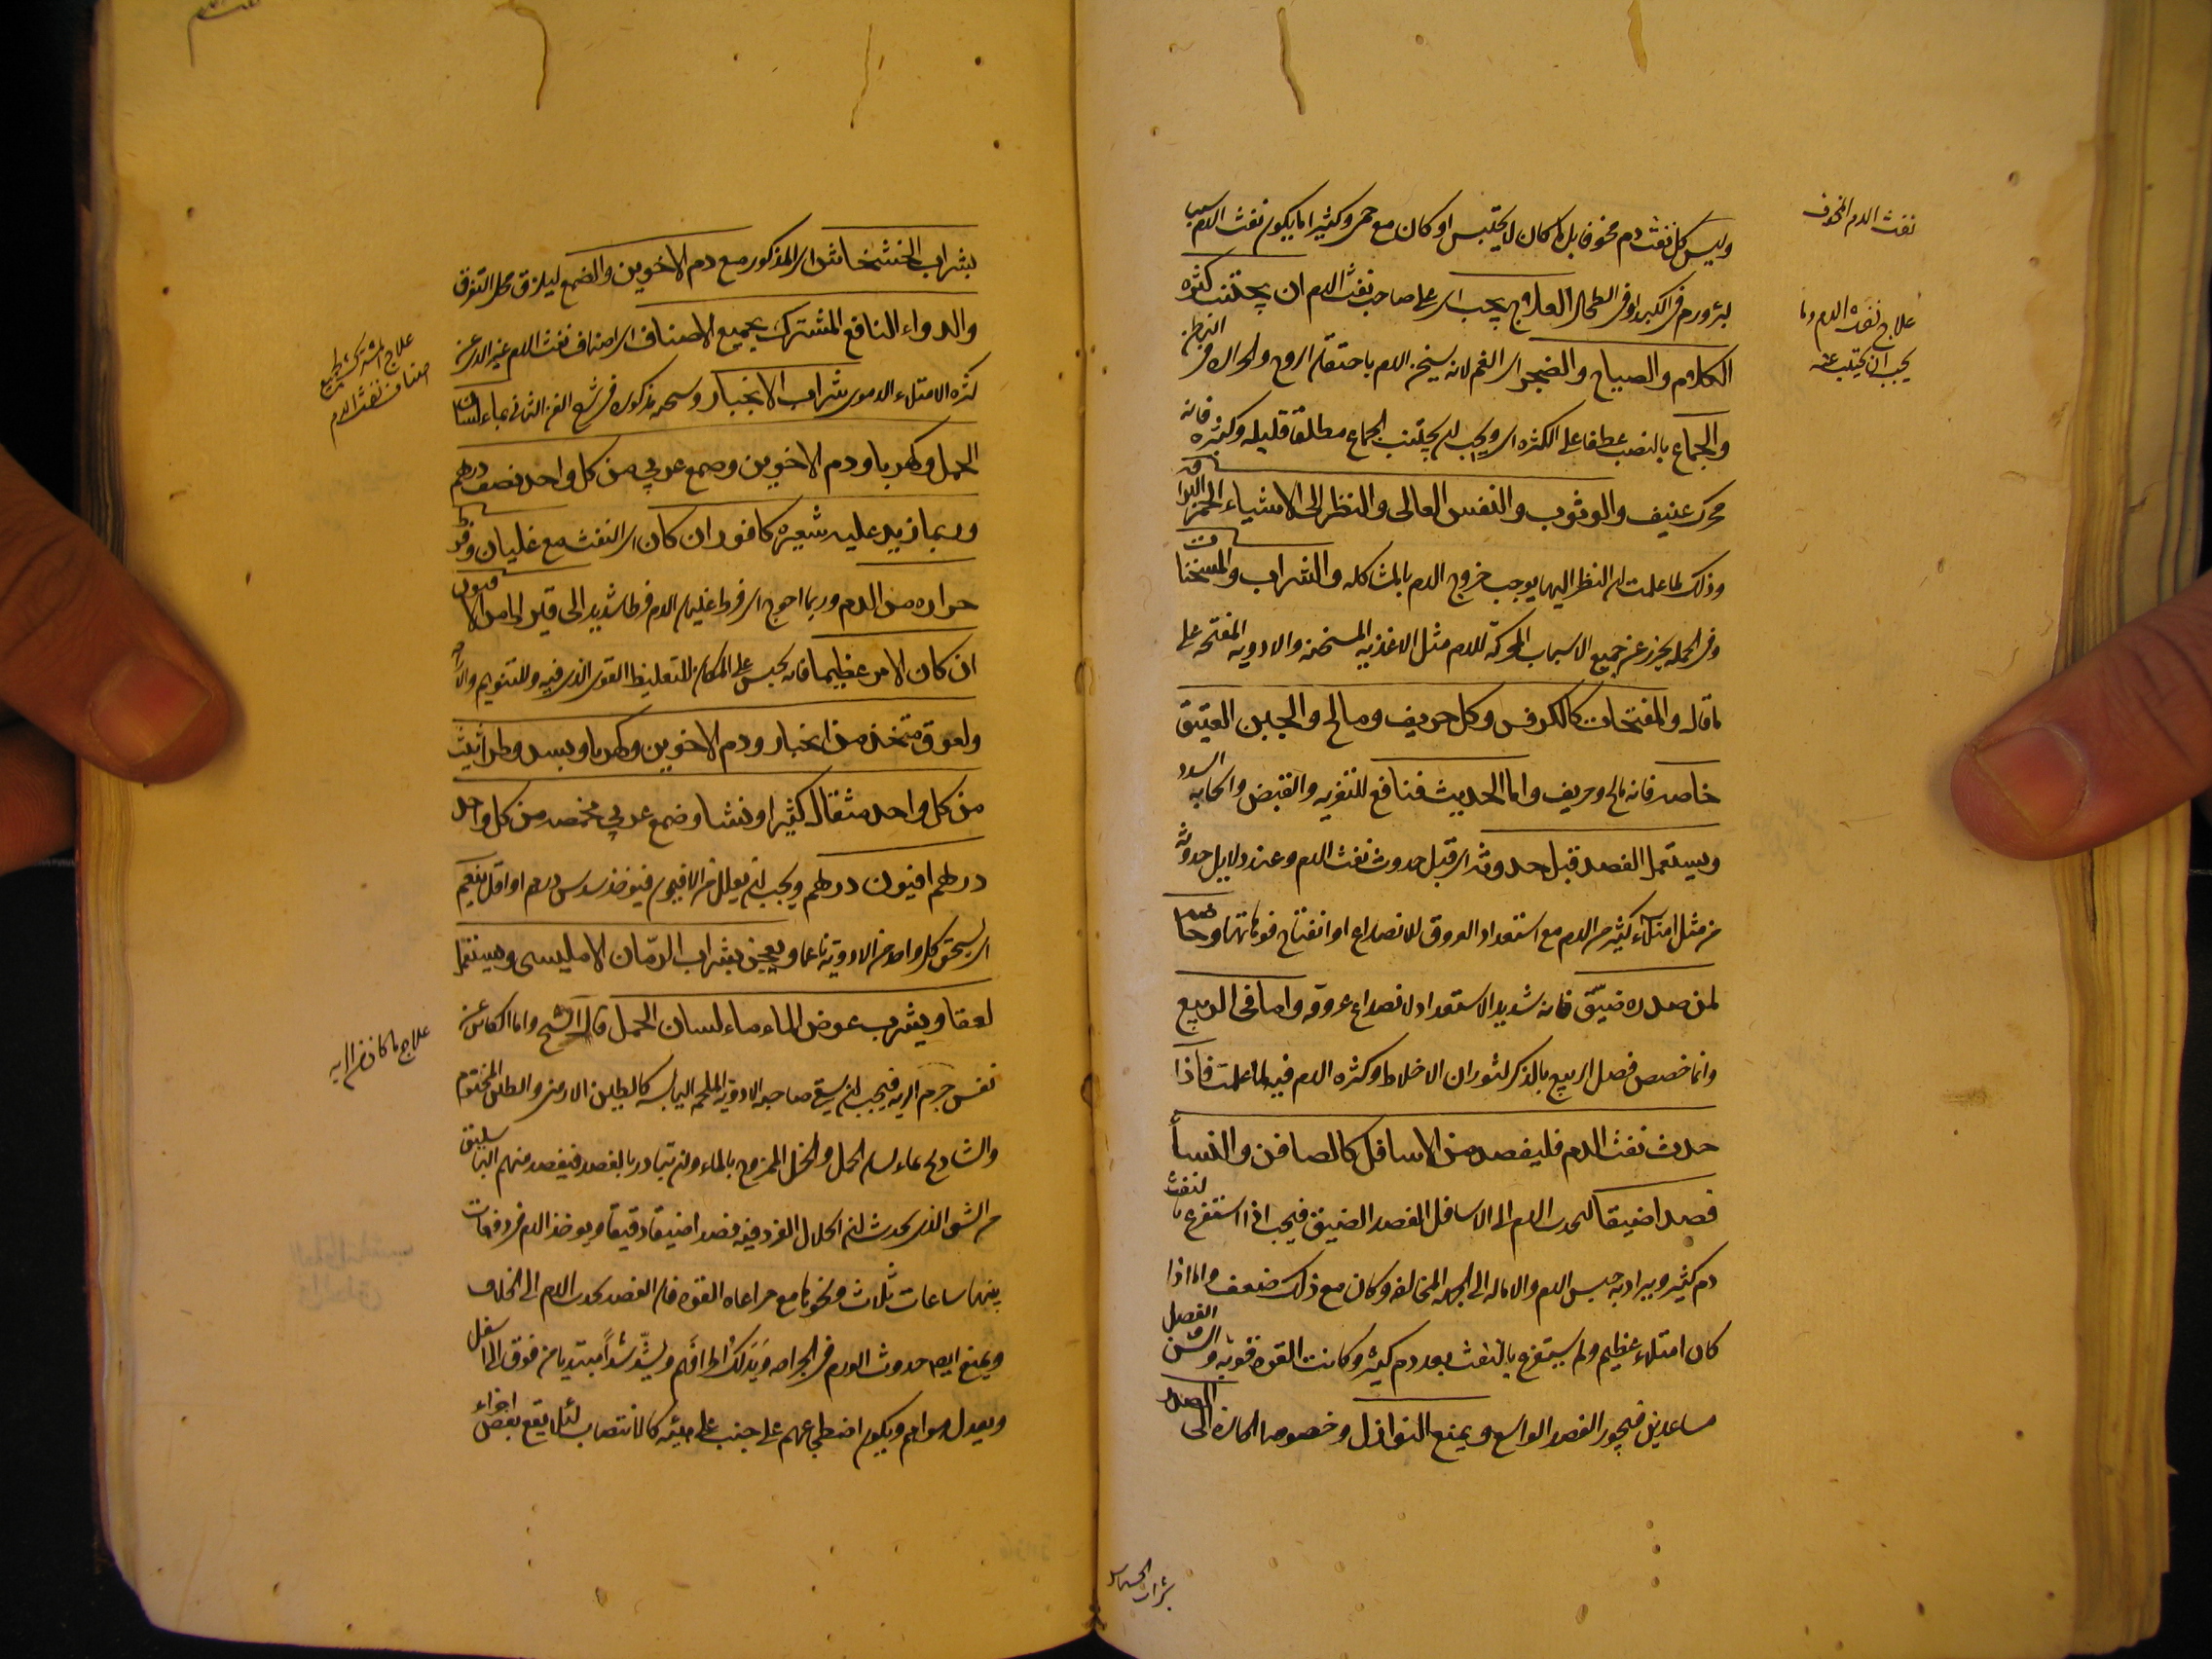 نفث الدم المخوف
وليس كل نفث دم مخوفا بل ما كان لا يحتبس او كان مع حمى وكثيرا ما يكون نفث الدم بسبب
علاج نفث الدم وما
يجب ان يجتنب عنه
لبرء ورم فى الكبد او فى الطحال العلاج يجب اى على صاحب نفث الدم ان يجتنب كثرة
الكلام والصياح والضجر اى الغم لانه يسخن الدم باحتقان الروح والحرارة فى
والجماع بالنصب عطفا على الكثره اى ويجب ان يجتنب الجماع مطلقا قليله وكثيره فانه
محرك عنيف والوثوب والنفس العالى والنظر الى الاشياء الحمر
وذلك لما علمت ان النظر اليها يوجب خروج الدم بالمشاكله والشراب والمسخنات
وفى الجمله يحترز عن جميع الاسباب المحركة للدم مثل الاغذيه المسخنه والادويه المفتحه على
ما قال والمفتحات كالكرفس وكل حريف ومالح والجبن العتيق
خاصه فانه مالح وحريف واما الحديث فنافع للتغريه والقبض
ويستعمل الفصد قبل حدوثه اى قبل حدوث نفث الدم وعند دلايل حدوثه
من مثل امتلاء كثير من الدم مع استعداد العروق للانصداع او انفتاح فوهاتها وخاصة
لمن صدره ضيّق فانه شديد الاستعداد لانصداع عروقه واما فى الربيع
وانما خصص فصل الربيع بالذكر لثوران الاخلاط وكثره الدم فيه لما علمت فاذا
حدث نفث الدم فليفصد من الاسافل كالصافن والنسا
فصدا ضيقا لجذب الدم الى الاسافل الفصد الضيق فيجب اذا استفرغ بالنفث
دم كثير ويراد به حبس الدم والاماله الى الجهه المخالفه وكان مع ذلك ضعف واما اذا
كان امتلاء عظيم ولم يستفرغ بالنفث بعد دم كثير وكانت القوه قويه والسن الفصل
مساعدين فيجوز الفصد الواسع ويمنع النوازل وخصوصا الحاره الى الصدر
بشراب الخشخاش
بشراب الخشخاش اى المذكور مع دم الاخوين والصمغ ليلزق محل التفرق
علاج المشترك لجميع
اصناف نفث الدم
والدواء النافع المشترك بجميع الاصناف اى اصناف نفث الدم غير الذى عن
كثره الامتلاء الدموى شراب الانجبار ونسخته مذكوره فى شرح الفن الثانى بماء لسان
الحمل وكهربا ودم الاخوين وصمغ عربي من كل واحد نصف درهم
وربما زيد عليه شعيره كافور ان كان اى النفث مع غليان وفرط
حراره من الدم وربما احوج اى فرط غليان الدم فرطا شديدا الى قيراط من الافيون
ان كان الامر عظيما فانه يحبس على المكان للتغليظ القوى الذى فيه وللتنويم
ولعوق متخذ من انجبار ودم الاخوين وكهربا وبسد وطراثيث
من كل واحد مثقال كثيرا ونشا وصمغ عربي محمص من كل واحد
درهم افيون درهم ويجب ان يقلل من الافيون فيوخذ سدس درهم او اقل ينعم
اى يسحق كل واحد من الادوية ناعما ويعجن بشراب الرمّان الامليسى ويستعمل
لعقا ويشرب عوض الماء ماء لسان الحمل قال الشيخ واما الكائن عن
علاج ما كان من الريه
نفس جرم الريه فيجب ان يسقى صاحبه الادويه الملحمه اليابسه كالطين الارمنى والطين المختوم
والشادنج بماء لسان الحمل والخل الممزوج بالماء وان يتبادر بالفصد فيفصد منهم الباسليق
من الشق الذى يحدث ان انحلال الفرد فيه فصدا ضيقا دقيقا ويوخذ الدم فى دفعات
بينها ساعات ثلاث ونحوها مع مراعاه القوه فان الفصد يجذب الدم الى الخلاف
ويمنع ايضا حدوث الورم فى الجراحه وتدلك اطرافهم ويشدّ شداً مبتديا من فوق الى اسفل
ويعدل هواهم ويكون اضطجاعهم على جنب على هيئه كالانتصاب لئلا يقع بعض اجزاء